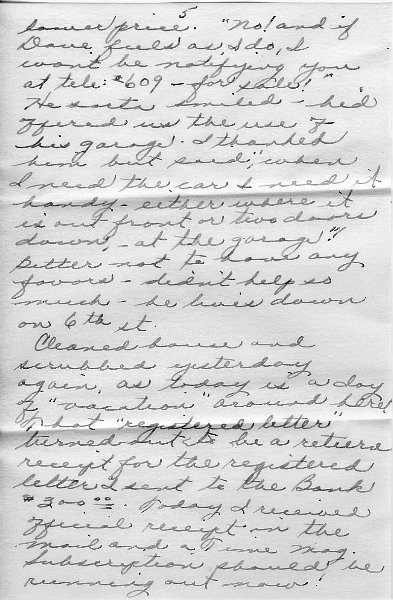 5
lower price. "No! and if
Dave feels as I do, I
wont be notifying you
at tele. #609 - for sale!"
He sorta smiled - he'd
offered us the use of
his garage. I thanked
him but said, "when
I need the car I need it
handy - either where it
is out front or two doors
down, - at the garage"!
Better not to have any
favors - didn't help so
much - he lives down
on 6th st.
Cleaned house and
scrubbed yesterday
again, as today is a day
of "vacation" around here!
That "registered letter"
turned out to be a return
receipt for the registered
letter I sent to the Bank
$200.00. Today I received
official receipt in the
mail and a Time Mag.
Subscription should be
running out now!